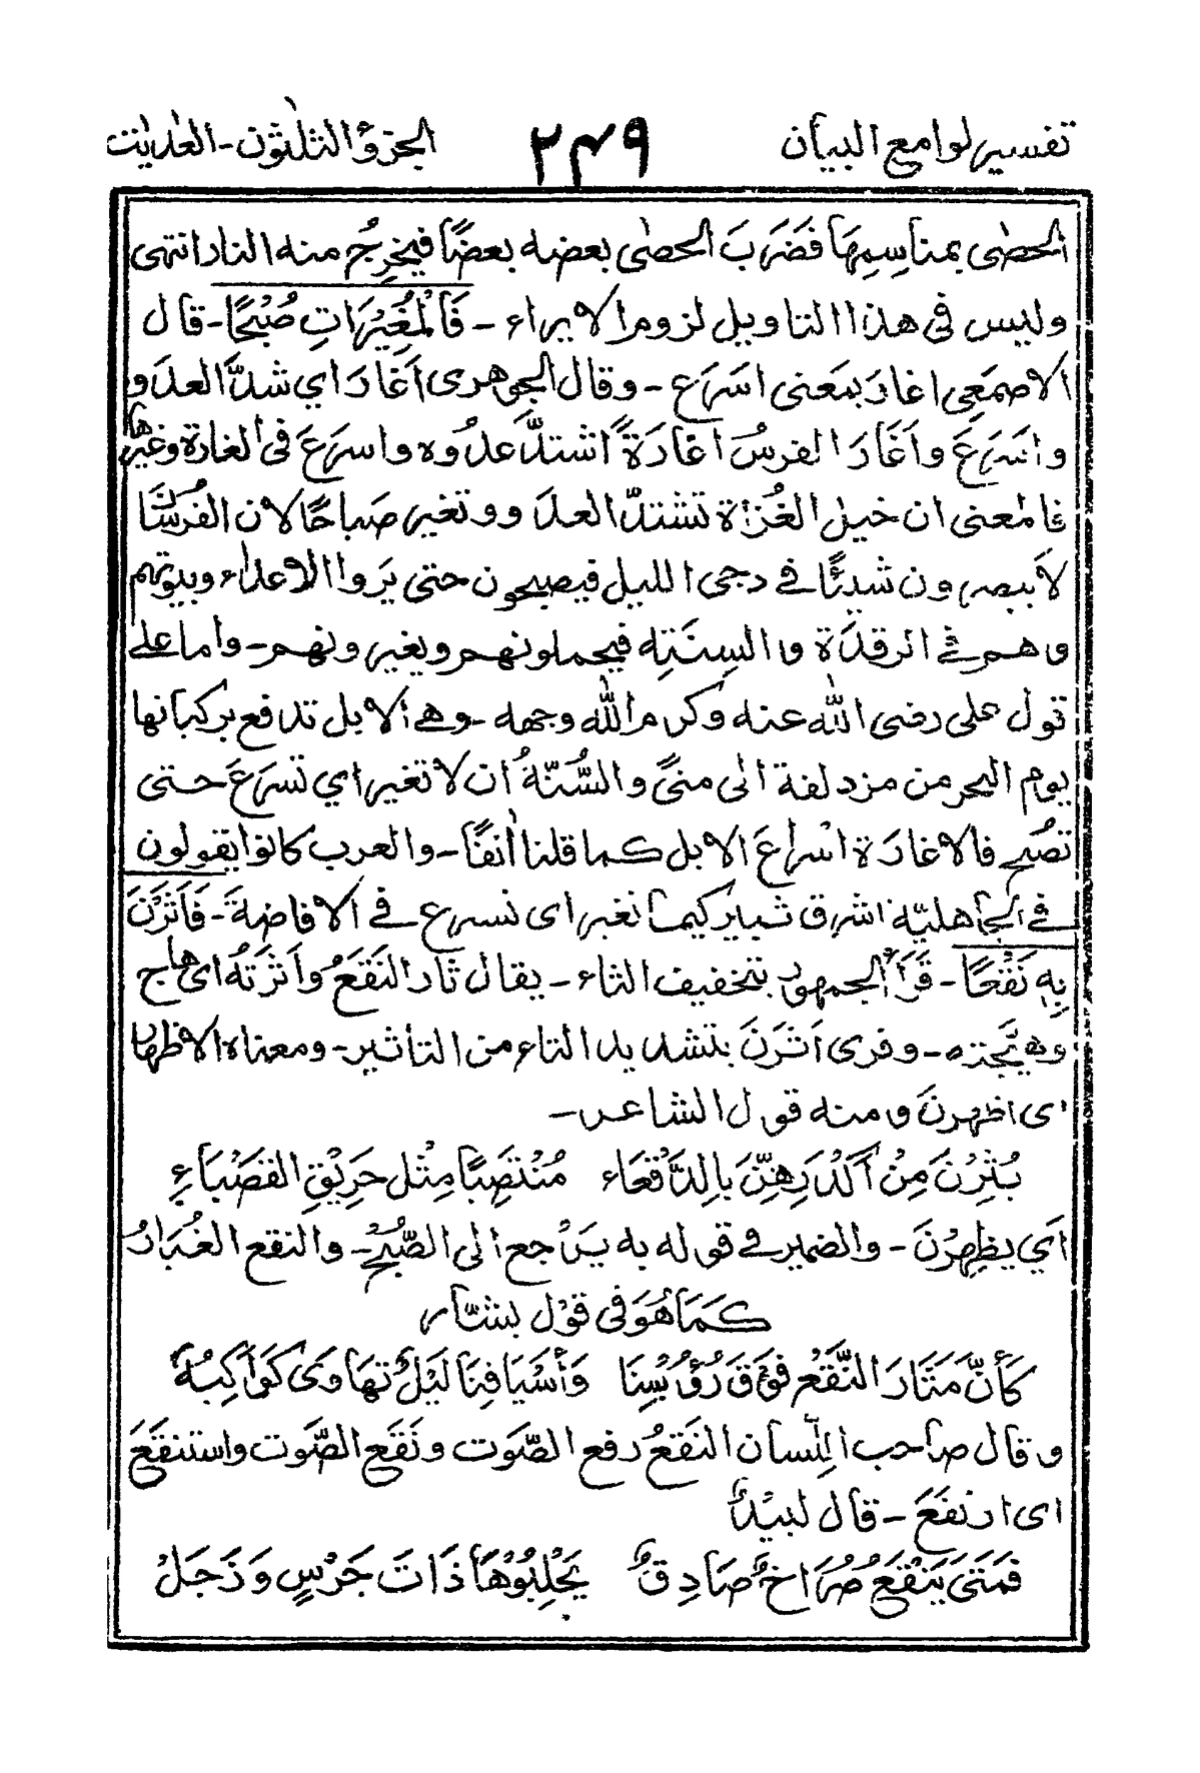 تفسير لوامع البيان ٢٤٩ الجزؤ الثلثون - العٰديٰت
الحصٰى بمناسِمِهَا فضَرَبَ الحصٰى بعضه بعضًا فيخرِجُ منه النار انتهى
وليس فى هذا التاويل لزوم الايراء - فَالْمُغِيْرَاتِ صُبْحًا - قال
الاصمَعِى اغارَ بمَعنى اسَرَع - وقال الجوهرى اَغارَ اي شدَّ العدَو
واَسَرَعَ واَغَارَ الفرسُ اغَارَةً اشتدَّ عدُوه واسرَعَ فى الغارة وغيرها
فالمعنى ان خيل الغُزاة تشتدّ العدَو وتغير صباحًا لان الفُرسَّا
لاَ يبصرون شيئًا فے دجى الليل فيصبحون حتى يَروا الاعداء وبيوتهم
وهم فے الرقدَة والسِنَتِه فيحملونهم ويغيرونهم - واما علے
قول على رضى اللّٰه عنه وكرم اللّٰه وجهه - وهے الابل تدفع بركبانها
يوم النحر من مزدلفة الٰى منًى والسُّنّةُ ان لا تغير اي تسرَعَ حتى
تصُبح فالاغارَة اسْراعَ الابل كما قلنا اٰنفًا - والعرب كانوا يقولون
فے الجاهليّة اشرق ثبير كيما نغير اى نسرع فے الافاضة - فَاَثَرْنَ
بِهٖ نَقْعًا - قَرأَ الجمهور بتخفيف الثاء - يقال ثار النَقعُ واَثرَتهُ اى هاج
وهيّجته - وقرى اَثّرَنَ بتشديد الثاء من التاثير - ومعناه الاظهار
اى اظهرنَ ومنه قول الشاعر -
يُثِرْنَ مِنْ اَكْدَرِهِنَّ بِالدَّقْعَاء مُنْتَصِبًا مِثْل حَرِيْقِ القَصْبَاءِ
اَي يظهِرْنَ - والضمير فے قوله به يَرْجع الى الصُّبْحِ - والنقع الغُبَارُ
كَمَا هُوَ فى قوْل بشّار
كَأَنَّ مَثَارَ النَّقْعِ فوْقَ رُؤُسِنَا وَأسْيَافِنَا لَيْلٌ تهَاوَىٰ كَوَاكِبُهُ
وقال صاحب اللّسان النَقعُ رفع الصَّوت ونَقَع الصَّوت واستنقَعَ
اى ارتفَعَ - قال لبيْدٌ
فَمَتىٰ يَنْقَعْ صُرَاخٌ صَادِقٌ يَحْلِبُوْهَا ذَاتَ جَرْسٍ وَزَجَلْ